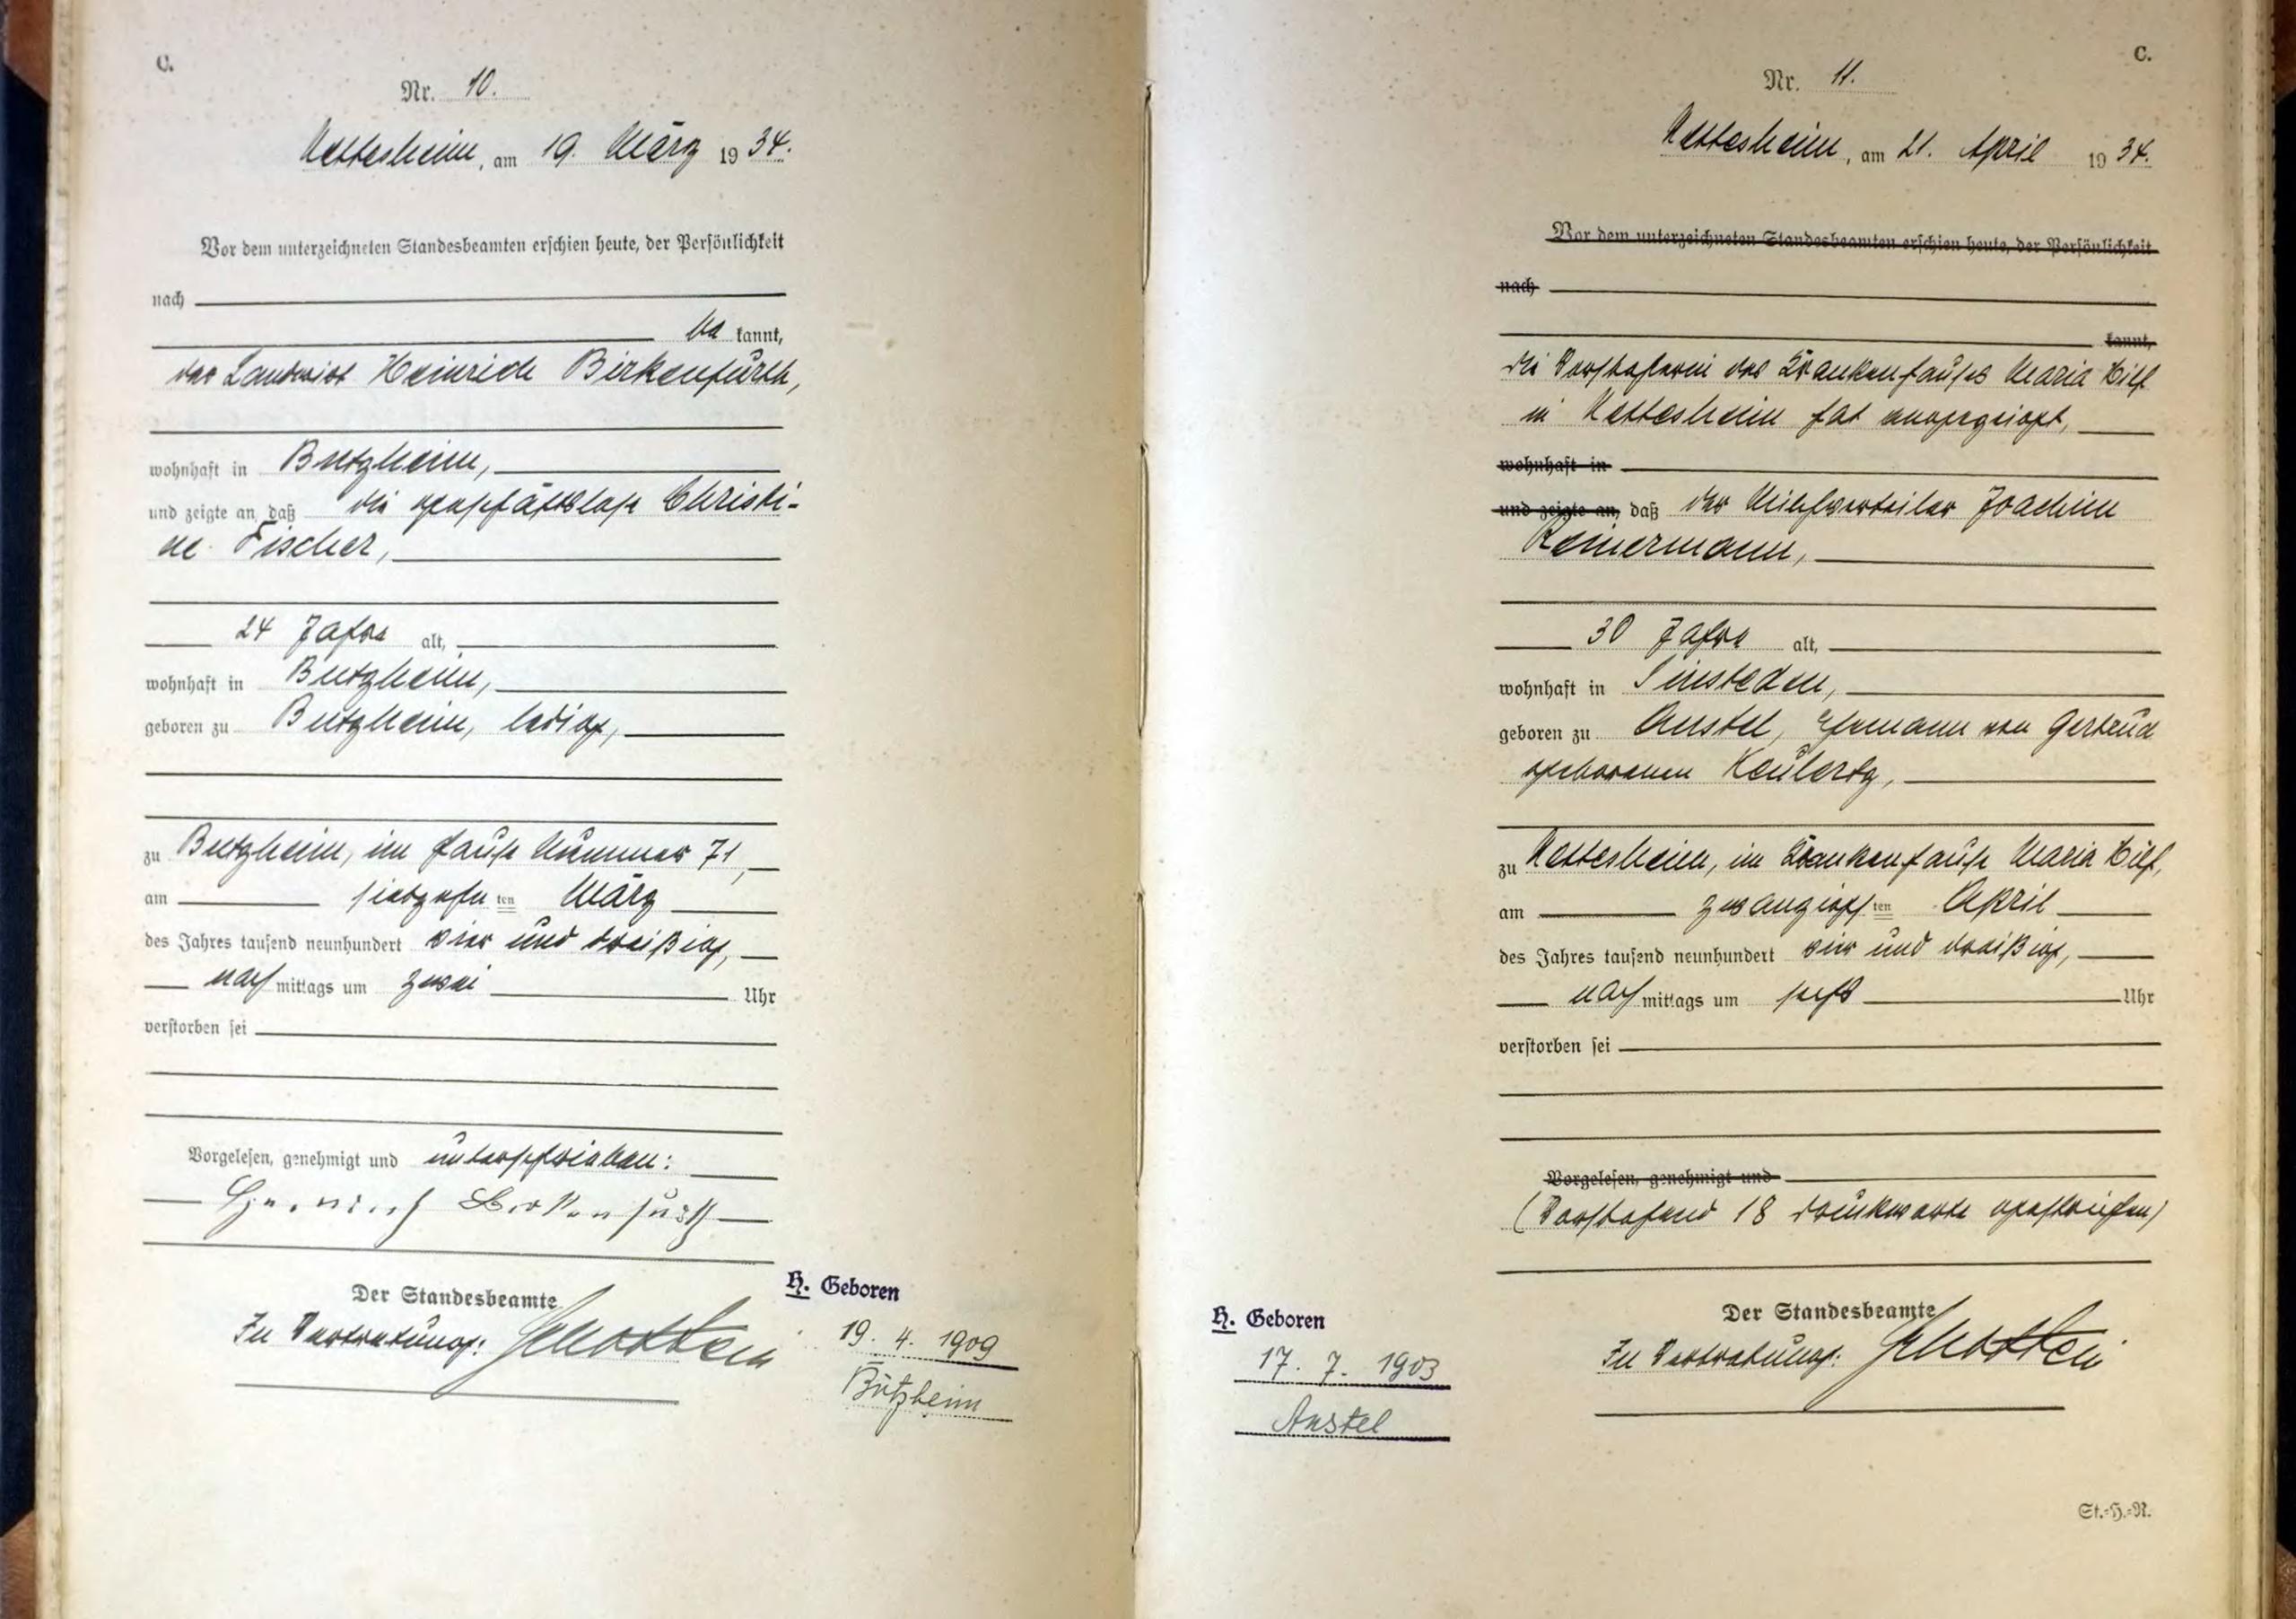 C.
Nr. 10.
Nettesheim, am 19. März 1934.
Vor dem unterzeichneten Standesbeamten erschien heute, der Persönlichkeit
nach
be kannt,
der Landwirt Heinrich Birkenfürth,
wohnhaft in Butzheim,
und zeigte an, daß die geschäftslose Christi-
ne Fischer,
24 Jahre alt,
wohnhaft in Butzheim,
geboren zu Butzheim, ledig,
zu Butzheim, im Hause Nummer 71,
am siebzehn ten März
des Jahres tausend neunhundert vier und dreißig,
nach mittags um zwei Uhr
verstorben sei
Vorgelesen, genehmigt und unterschrieben:
Heinrich Birkenfürth
Der Standesbeamte
In Vertretung:
H. Geboren
19. 4. 1909
Bützheim
C.
Nr. 11.
Nettesheim, am 21. April 1934.
Vor dem unterzeichneten Standesbeamten erschien heute, der Persönlichkeit
nach
kannt,
die Vorsteherin des Krankenhauses Maria Hilf
in Nettesheim hat angezeigt,
wohnhaft in
und zeigte an, daß der Milchverteiler Joachim
Reinermann,
30 Jahre alt,
wohnhaft in Sinsteden,
geboren zu Anstel, Ehemann von Gertrud
geborenen Keulertz,
zu Nettesheim, im Krankenhause Maria Hilf,
am zwanzigs ten April
des Jahres tausend neunhundert vier und dreißig,
nach mittags um sechs Uhr
verstorben sei
Vorgelesen, genehmigt und
(Vorstehend 18 Druckworte gestrichen)
Der Standesbeamte
In Vertretung:
H. Geboren
17. 7. 1903
Anstel
St.-H.-R.